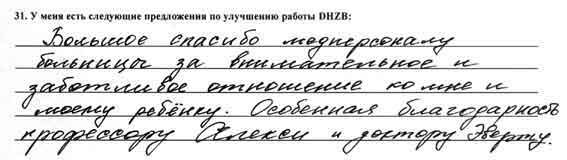 31. У меня есть следующие предложения по улучшению работы DHZB:
Большое спасибо медперсоналу
больницы за внимательное и
заботливое отношение ко мне и
моему ребёнку. Особенная благодарность
профессору Алекси и доктору Эверту.